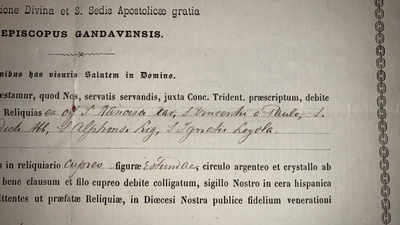 ione Divina et S. Sedis Apostolicæ gratia
EPISCOPUS GANDAVENSIS.
nibus has visuris Salutem in Domino.
estamur, quod Nos, servatis servandis, juxta Conc. Trident. præscriptum, debite
Reliquias ex oss. S. Francisci Xav, S. Vincentii a Paulo, S.
dicti Abb, S. Alphonsi Lig, S. Ignatii Loyola.
s in reliquiario cupreo figuræ rotundae, circulo argenteo et crystallo ab
bene clausum et filo cupreo debite colligatum, sigillo Nostro in cera hispanica
ittentes ut præfatæ Reliquiæ, in Diœcesi Nostra publice fidelium venerationi